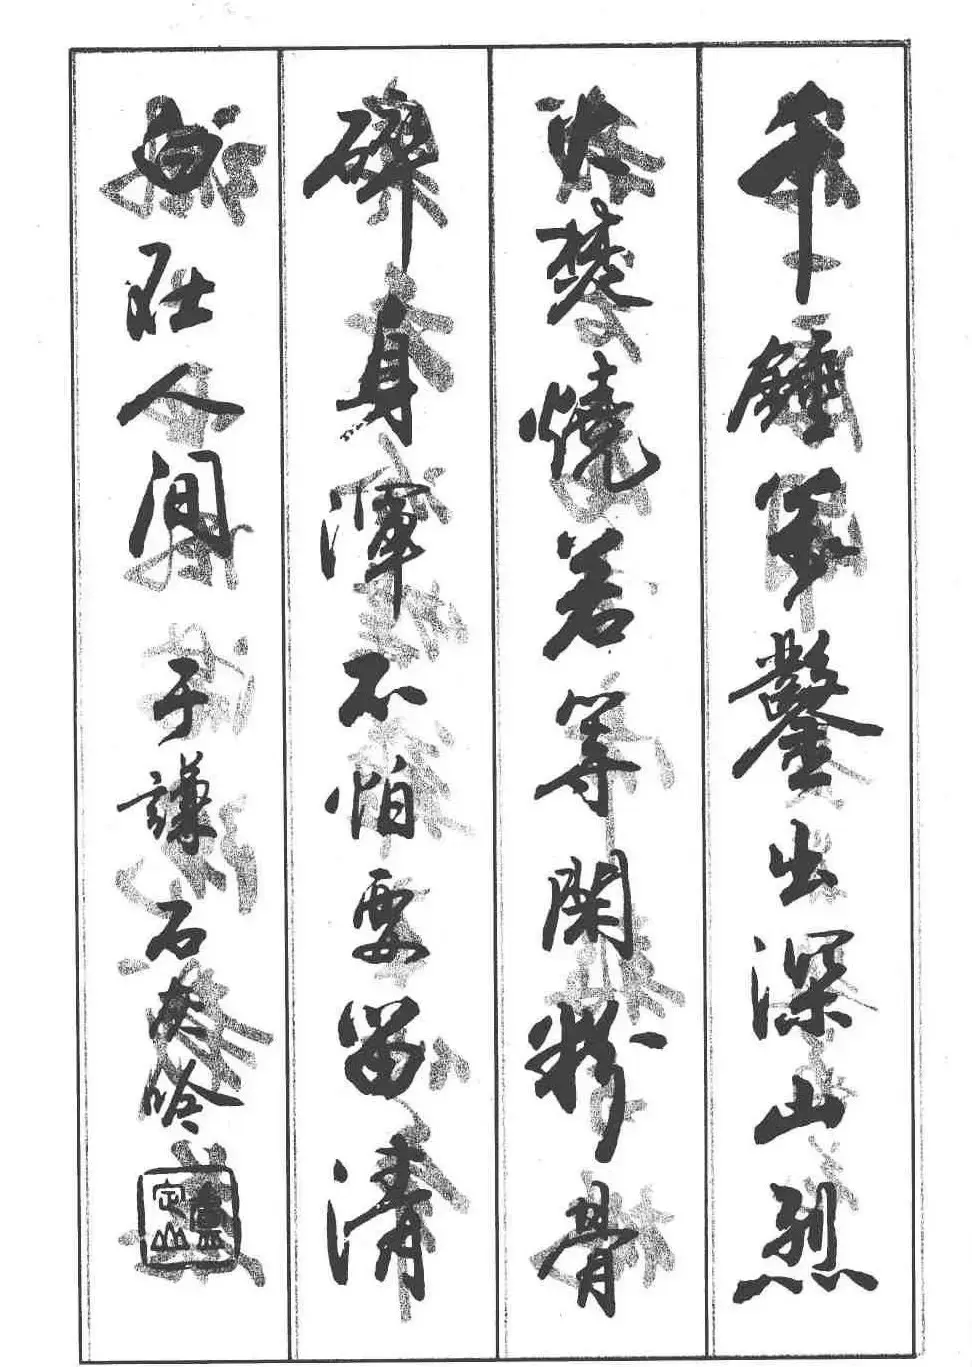 千錘萬鑿出深山烈
火焚燒若等閑粉骨
碎身渾不怕要留清
白在人間 于謙石灰吟
盧定山